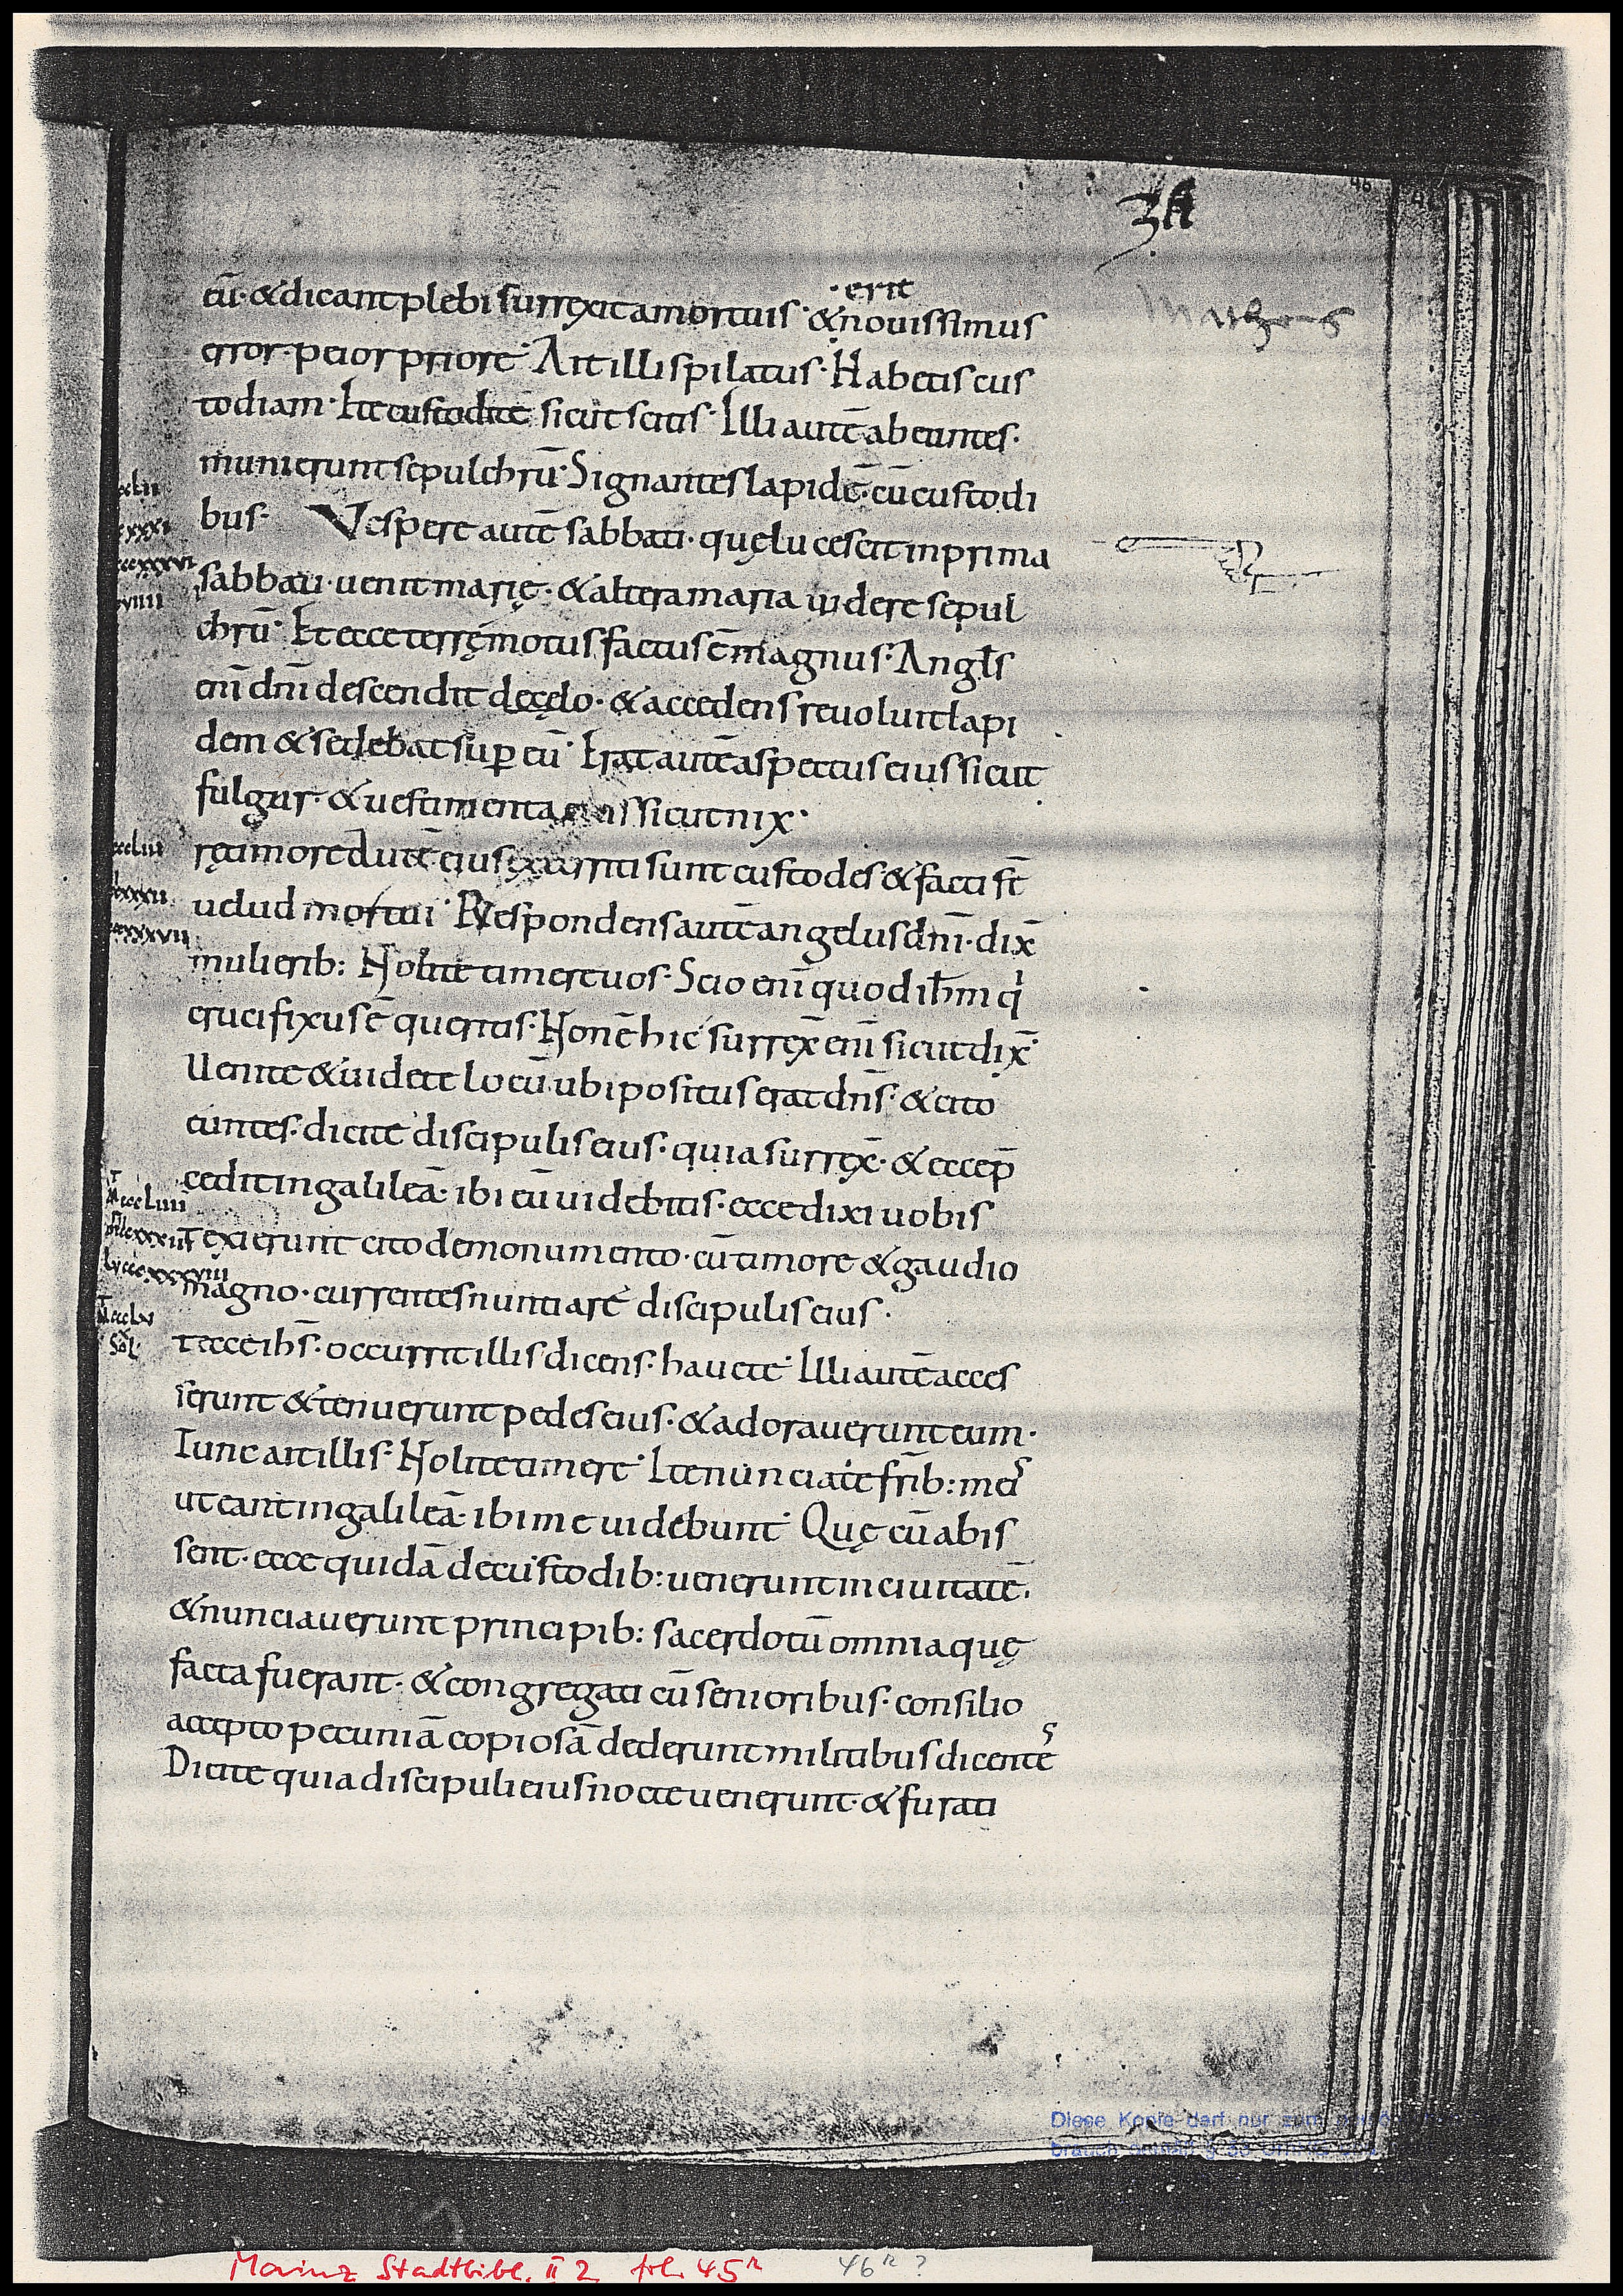 Matheus
erit
eū· & dicant plebi surrexit a mortuis· & nouissimus
error· peior priore· Ait illis pilatus· Habetis cus
todiam· Ite custodite sicut scitis· Illi autē abeuntes·
munierunt sepulchrū· Signantes lapidē· cū custodi
bus· Vespere autē sabbati· quę lucescit in prima
sabbati· uenit marię· & altera maria uidere sepul
chrū· Et ecce terrę motus factus ē magnus· Angls
eni dni descendit de cęlo· & accedens reuoluit lapi
dem & sedebat sup eū· Erat autē aspectus eius sicut
fulgur· & uestimenta eius sicut nix·
timore autē eius exterriti sunt custodes & facti st̄
uelud mortui· Respondens autē angelus dni· dix̄
mulierib: Nolite timere uos· Scio eni quod ihm qi
crucifixus ē queritis· Non ē hic surrex̄ eni sicut dix̄·
Uenite & uidete locū ubi positus erat dns· & cito
euntes· dicite discipulis eius· quia surrex̄· & ecce p̄
cedit in galileā· ibi eū uidebitis· ecce dixi uobis
T exierunt cito de monumento· cū timore & gaudio
magno· currentes nuntiare discipulis eius·
T ecce ihs· occurrit illis dicens· hauete· Illi autē acces
serunt & tenuerunt pedes eius· & adorauerunt eum·
Tunc ait illis· Nolite timere· Ite nunciate frib: meis
ut eant in galileā· ibi me uidebunt· Quę cū abis
sent· ecce quidā de custodib: uenerunt in ciuitatē·
& nunciauerunt principib: sacerdotū omnia quę
facta fuerant· & congregati cū senioribus· consilio
accepto pecuniā copiosā dederunt militibus dicentes
Dicite quia discipuli eius nocte uenerunt· & furati
Diese Kopie darf nur zum
Mainz Stadtbibl. II 2 fol. 45r 46r ?